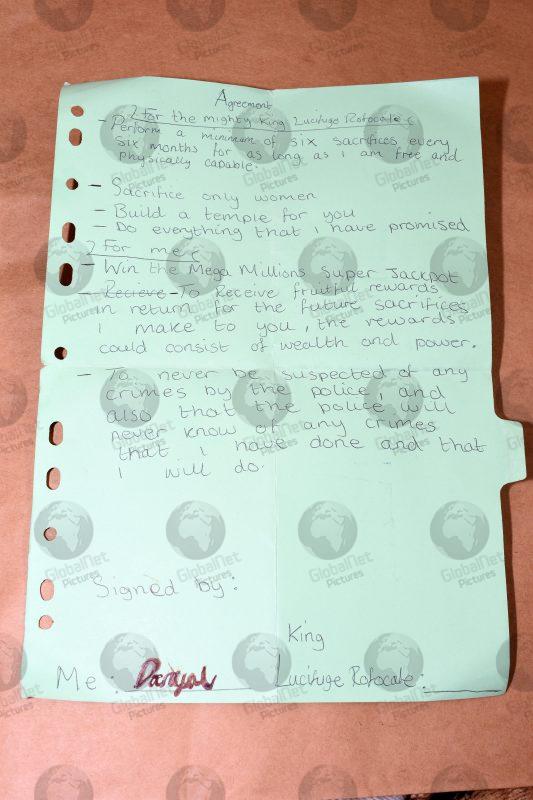 Agreement
For the mighty king Lucifuge Rofocale
- Perform a minimum of six sacrifices every
six months for as long as I am free and
physically capable.
- Sacrifice only women
- Build a temple for you
- Do everything that I have promised
For me
- Win the Mega Millions Super Jackpot
- Recieve To receive fruitful rewards
in return for the future sacrifices
I make to you, the rewards
could consist of wealth and power.
- To never be suspected of any
crimes by the police, and
also that the police will
never know of any crimes
that I have done and that
I will do.
Signed by:
King
Me: Danyal Lucifuge Rofocale:
GlobalNet
Pictures